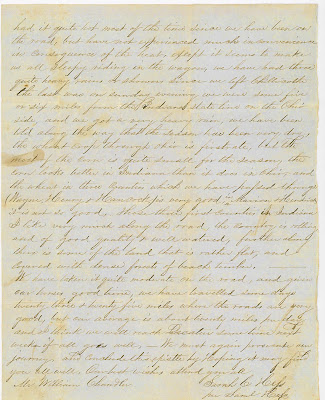 had it quite hot most of the time since we have been on
the road, but have not experienced much inconvenience
in consequence of the heat, except it seems to make
us all sleepy riding in the wagon, we have had three
quite heavy rains & showers since we left
the last was on Sunday evening we were some five
or six miles from the Indiana State line on the Ohio
side, and we got a very heavy rain, we have been
told along the way that the season has been very dry,
the wheat crop through Ohio is first rate. But the
most of the corn is quite small for the season, the
corn looks better in Indiana than it does in Ohio, and
the wheat in three Counties which we have passed through
(Wayne, Henry & Hancock) is very good. Marion &
it is not so good, these three first counties in Indiana
I like very much along the road, the country is rolling
and of good quality & well watered, further along
there is some of the land that is rather flat, and
covered with dense forests of beach timber.
We have taken it quite moderate on the road, and given
our horses good time, we have travelled some days
twenty three & twenty five miles where the roads was very
good, but our average is about twenty miles per day
and I think we will reach some time next
week if all goes well, We must again pursue our
journey, and conclud this epistle by hoping it may find
you all well. Our best wishes attend you all
Mr William Chandlee
Hess
Hess